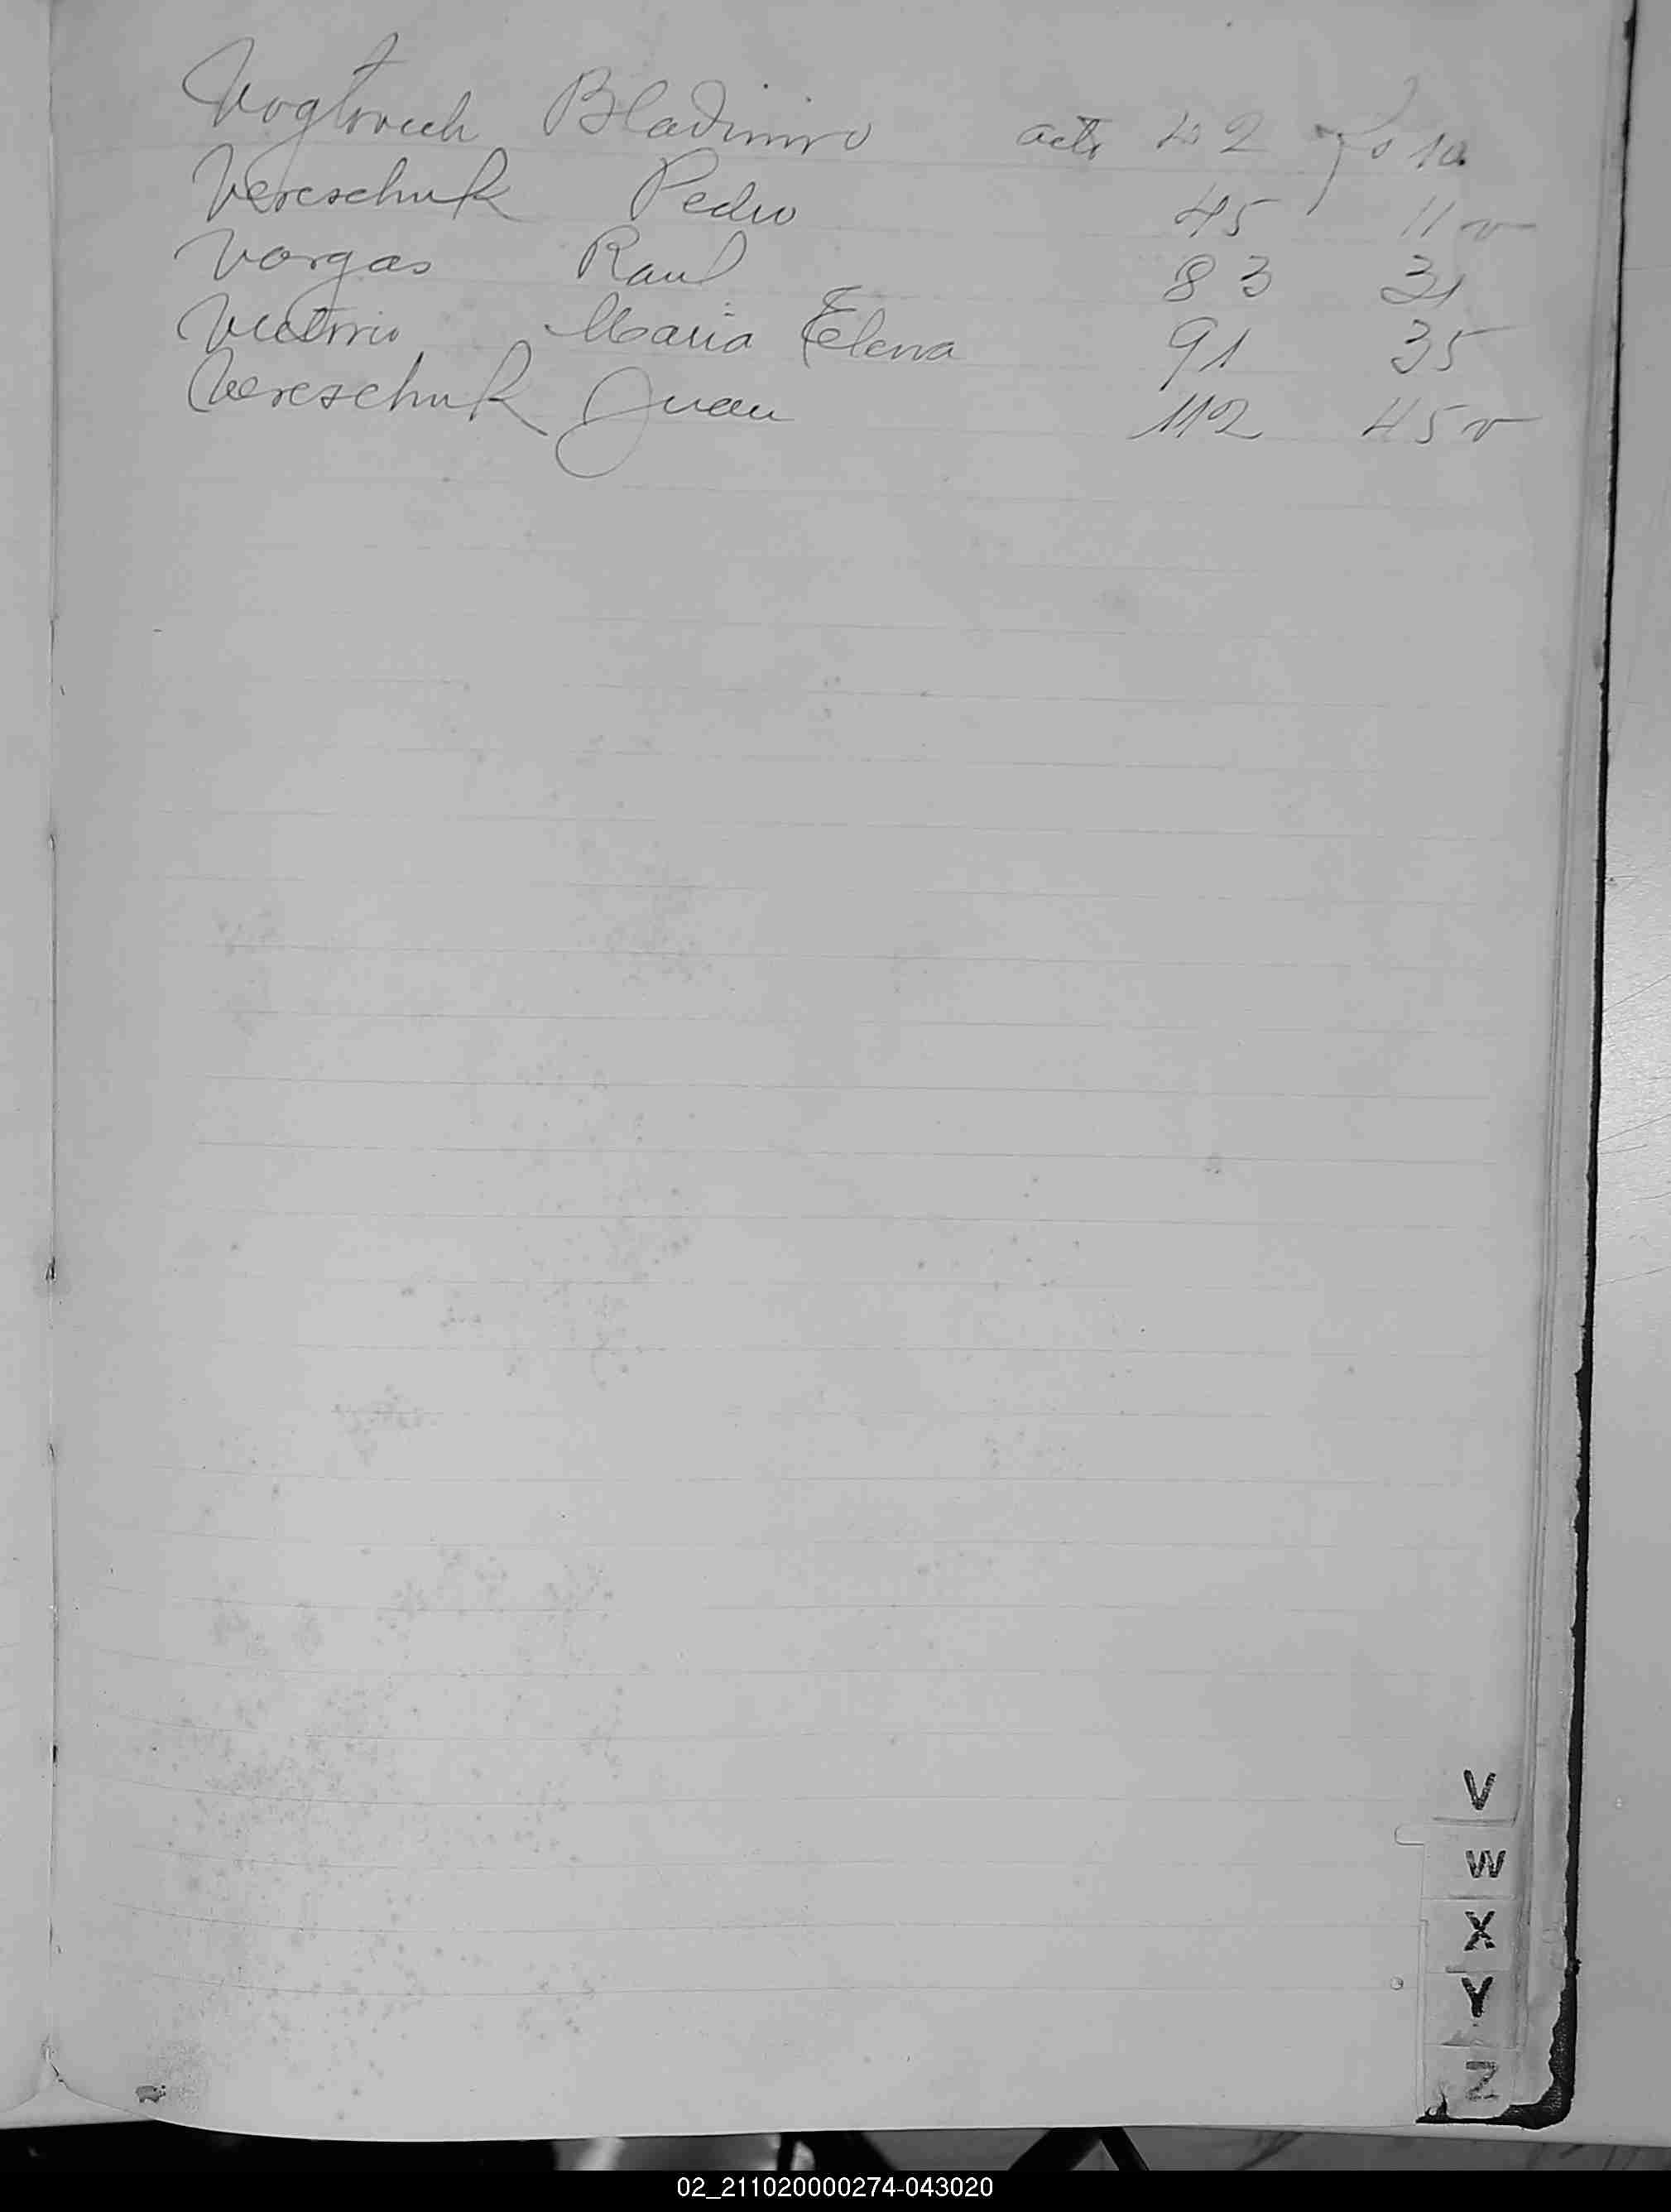 Bladimiro acta 42 fo 10
Vereschuk Pedro 45 11 v
Vargas Raul 83 31
Victorio Maria Elena 91 35
Vereschuk Juan 112 45 v
V
W
X
Y
Z
02_211020000274-043020